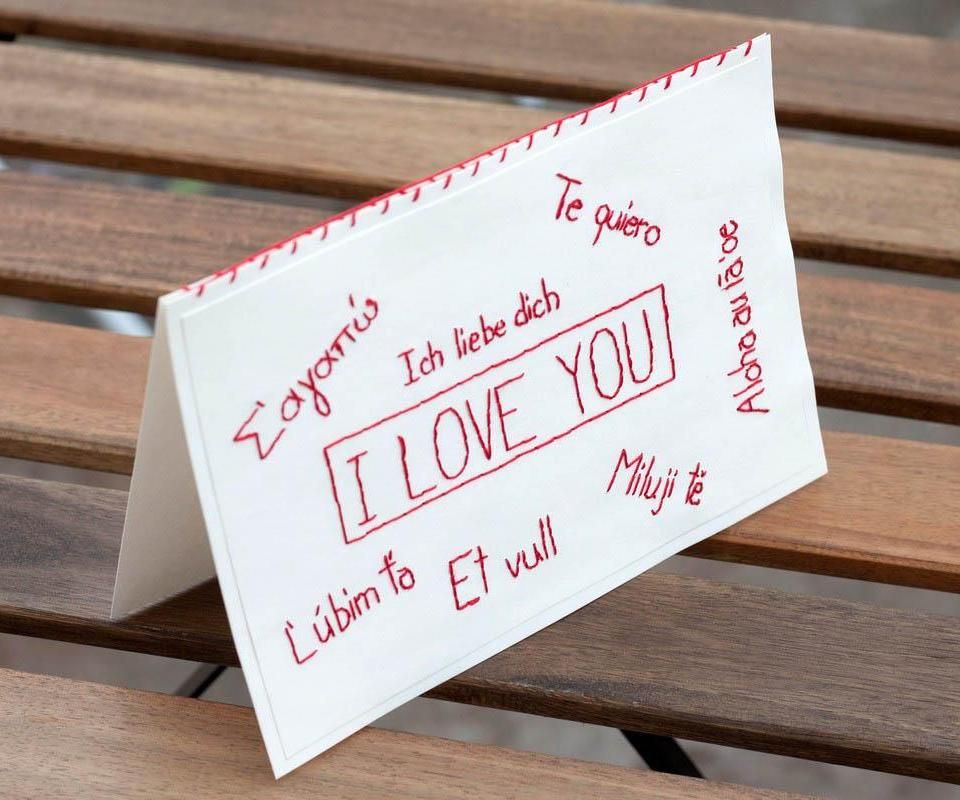 Te quiero
Σ'αγαπώ
Ich liebe dich
I LOVE YOU
Aloha au iā 'oe
Miluji tě
Ľúbim ťa
Et vull